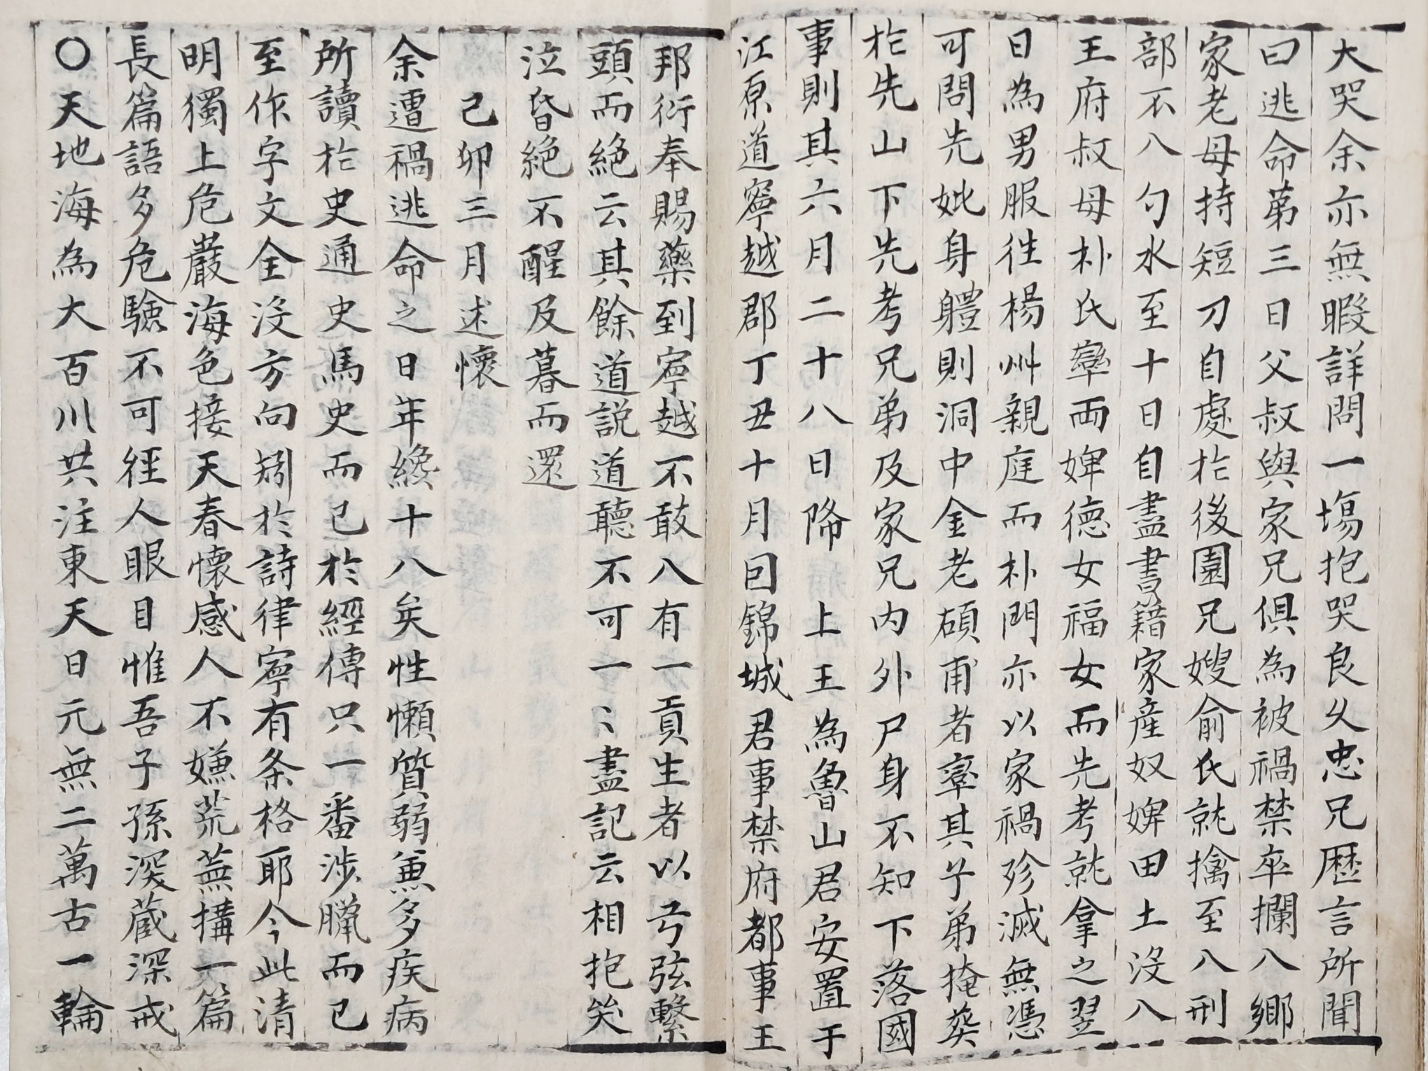 大哭余亦無暇詳問一塲抱哭良久忠兄歷言所聞
曰逃命第三日父叔與家兄俱為被禍禁卒攔入鄉
家老母持短刀自處於後園兄嫂俞氏就擒至入刑
部不入勺水至十日自盡書籍家産奴婢田土沒入
王府叔母朴氏率兩婢德女福女而先考就拿之翌
日為男服徃楊州親庭而朴門亦以家禍殄滅無憑
可問先妣身軆則洞中金老碩甫者率其子弟掩葬
於先山下先考兄弟及家兄內外尸身不知下落國
事則其六月二十八日降上王為魯山君安置于
江原道寧越郡丁丑十月因錦城君事禁府都事王
邦衍奉賜藥到寧越不敢入有一貢生者以弓弦繫
頭而絶云其餘道説道聽不可一〻盡記云相抱哭
泣昏絶不醒及暮而還
己卯三月述懷
余遭禍逃命之日年纔十八矣性懶質弱兼多疾病
所讀於史通史馬史而已於經傳只一番涉臘而已
至作字文全沒方向矧於詩律寧有条格耶今此清
明獨上危巖海色接天春懷感人不嫌荒蕪搆一篇
長篇語多危險不可徑人眼目惟吾子孫深蔵深戒
〇天地海為大百川共注東天日元無二萬古一輪